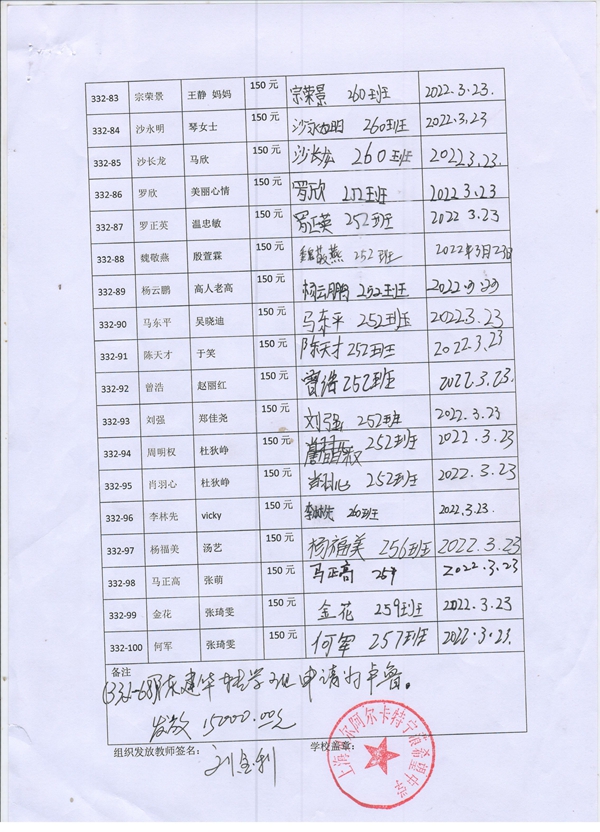 332-83 宗荣景 王静 妈妈 150 元 宗荣景 260班 2022.3.23.
332-84 沙永明 琴女士 150 元 沙永明 260班 2022.3.23
332-85 沙长龙 马欣 150 元 沙长龙 260班 2022.3.23.
332-86 罗欣 美丽心情 150 元 罗欣 252班 2022.3.23
332-87 罗正英 温忠敏 150 元 罗正英 252班 2022 3.23
332-88 魏敬燕 殷萱霖 150 元 魏敬燕 252 班 2022年3月23日
332-89 杨云鹏 高人老高 150 元 杨云鹏 252班 2022.3.23
332-90 马东平 吴晓迪 150 元 马东平 252班 2022.3.23
332-91 陈天才 于笑 150 元 陈天才 252班 2022.3.23
332-92 曾浩 赵丽红 150 元 曾浩 252班 2022.3.23.
332-93 刘强 郑佳尧 150 元 刘强 252班 2022.3.23
332-94 周明权 杜狄峥 150 元 252班 2022.3.23
332-95 肖羽心 杜狄峥 150 元 肖羽心 252班 2022.3.23
332-96 李林先 vicky 150 元 李林先 260班 2022.3.23.
332-97 杨福美 汤艺 150 元 杨福美 256班 2022.3.23
332-98 马正高 张萌 150 元 马正高 259 2022.3.23
332-99 金花 张琦雯 150 元 金花 259班 2022.3.23
332-100 何军 张琦雯 150 元 何军 257班 2022.3.23.
备注
建华 学 申请 卢鲁。
发放 15000.00元
组织发放教师签名： 学校盖章：
上海 尔阿尔卡特宁蒗希望中学